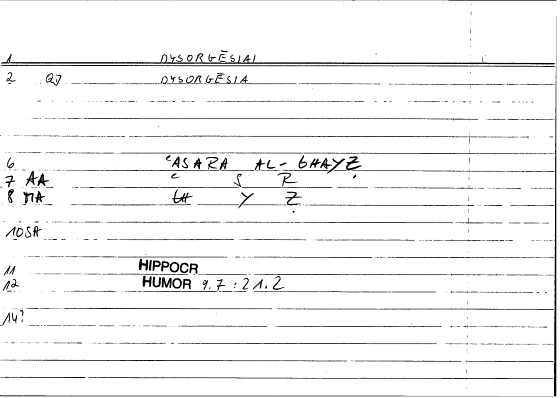 1 DYSORGĒSIAI
2 Q7 DYSORGĒSIA
6 ʿASARA AL-GHAYẒ
7 AA ʿ S R
8 MA GH Y Ẓ
10 SA
11 HIPPOCR
12 HUMOR 9.7 : 21.2
14?